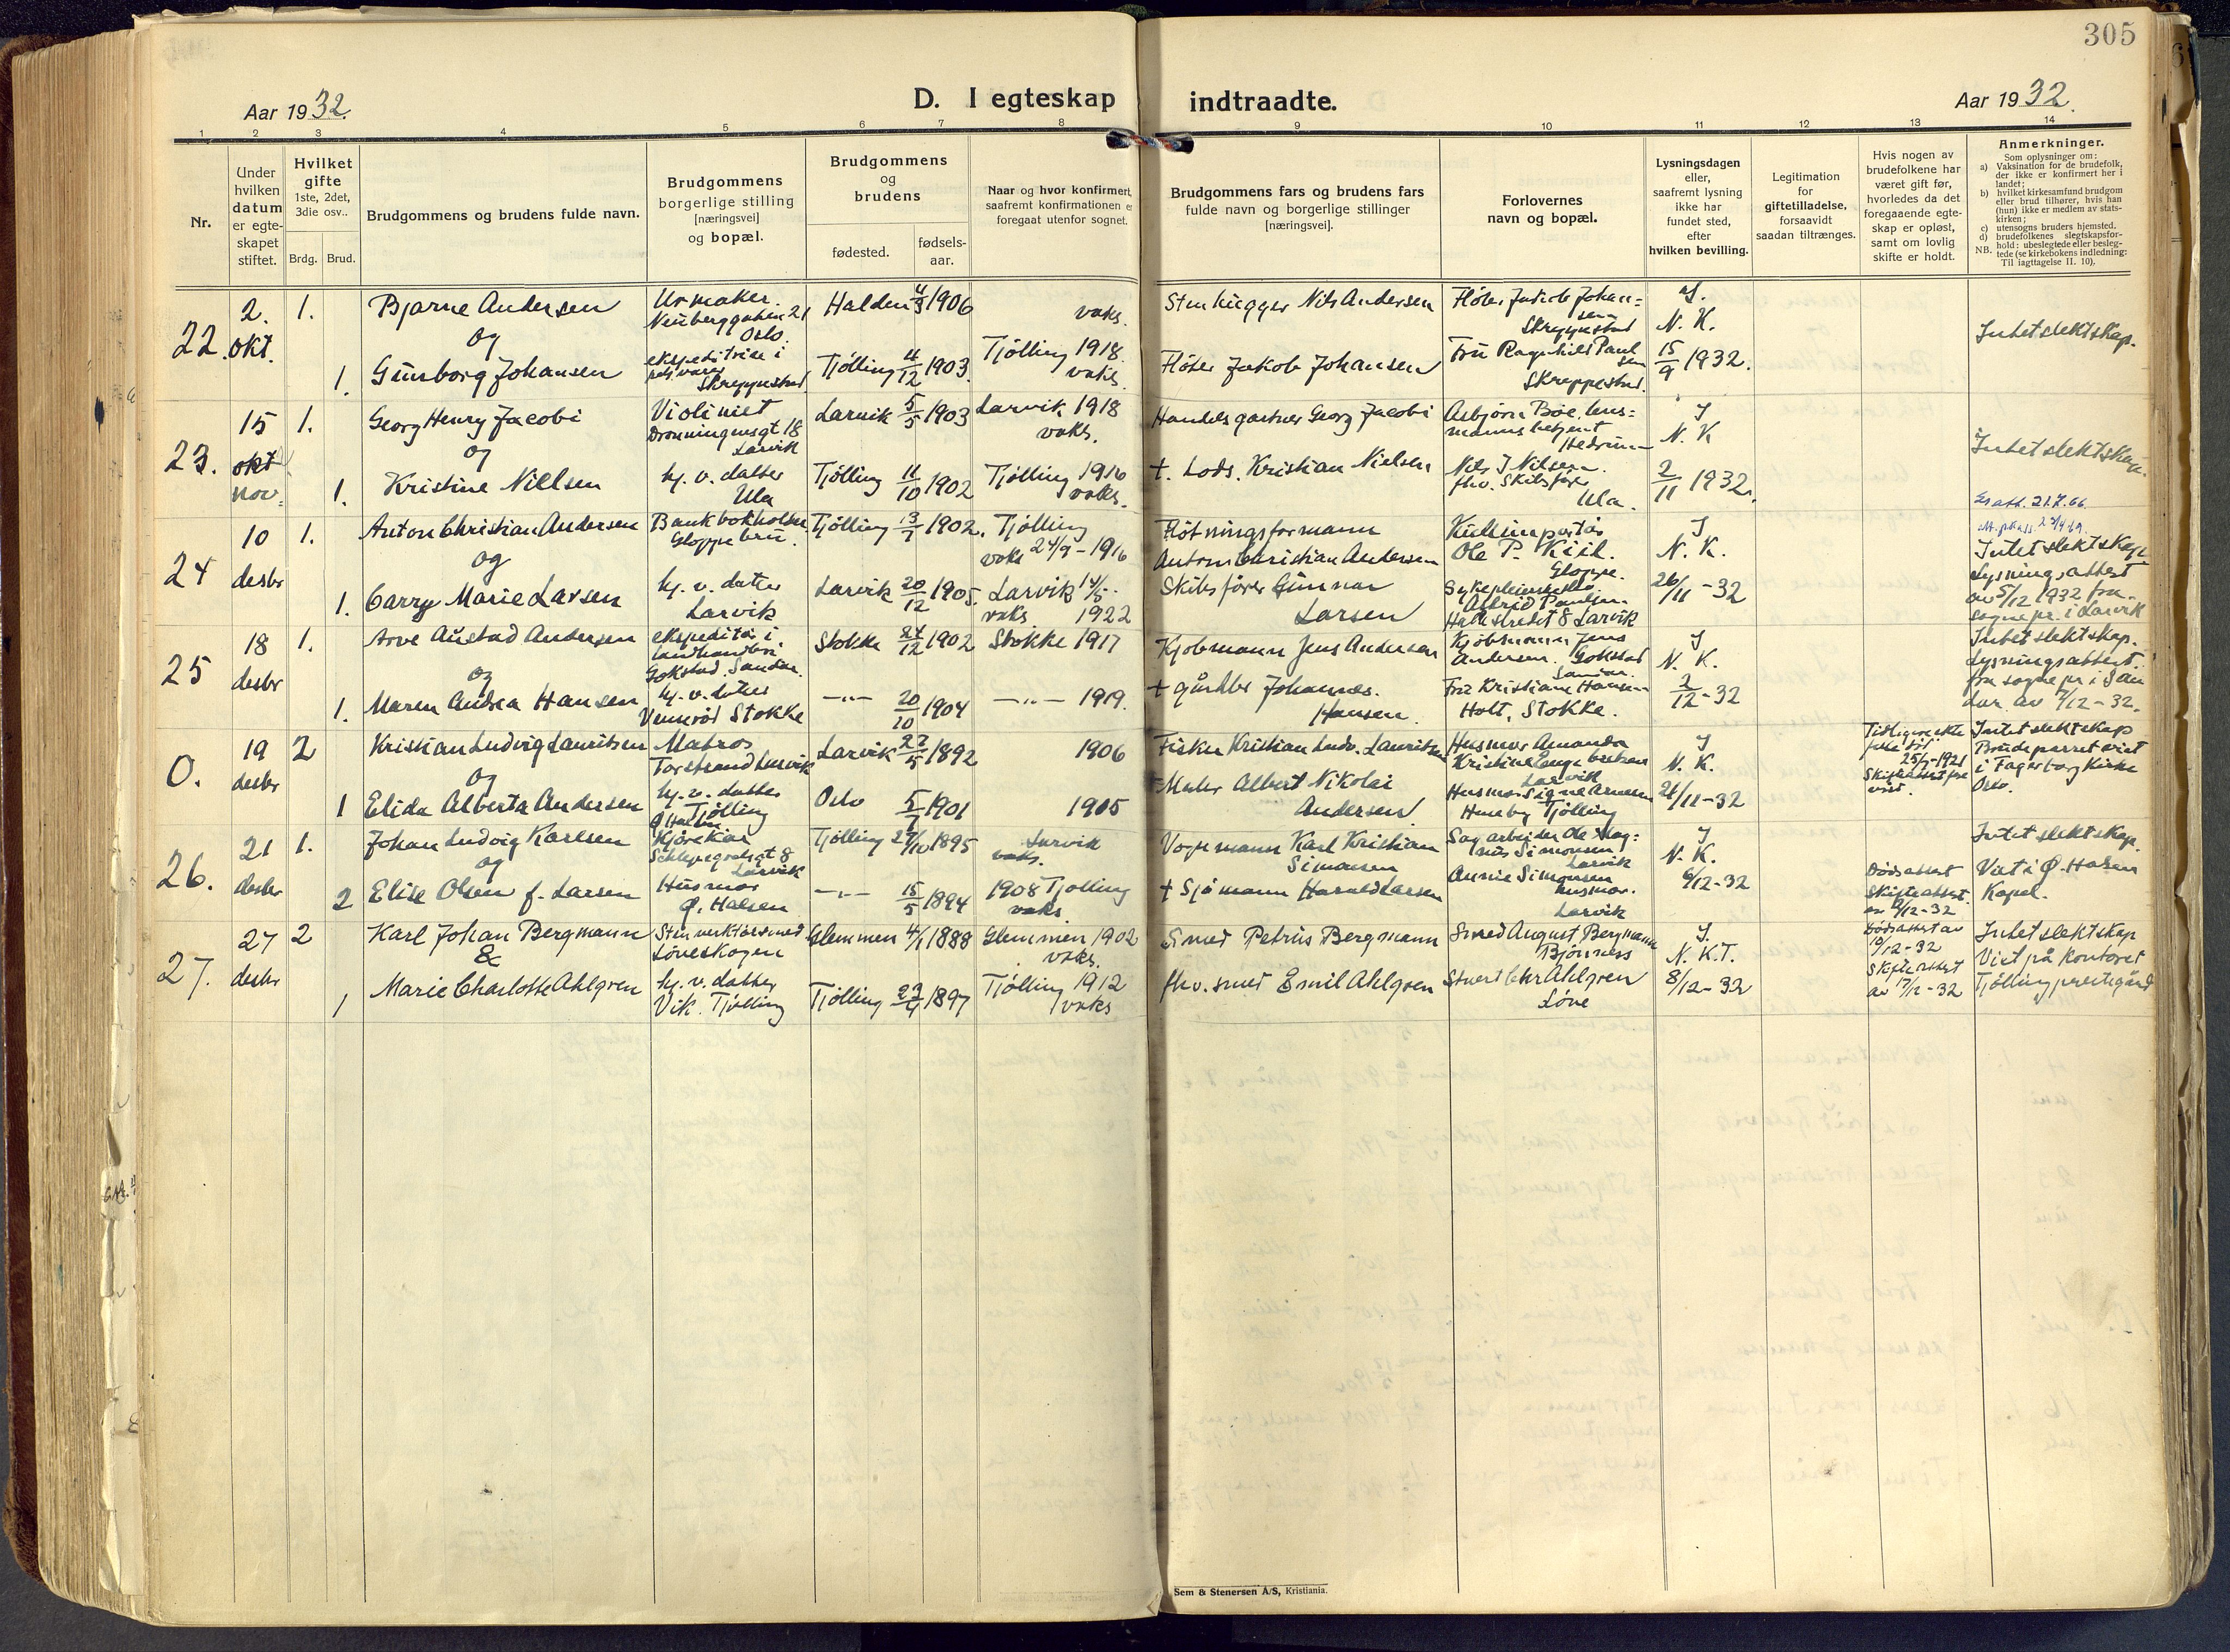 305
Aar 1932.
D. I egteskap indtraadte.
Aar 1932.
1 2 3 4 5 6 7 8 9 10 11 12 13 14
Nr.
Under hvilken datum er egte-skapet stiftet.
Hvilket gifte 1ste, 2det, 3die osv..
Brdg. Brud.
Brudgommens og brudens fulde navn.
Brudgommens borgerlige stilling [næringsvei] og bopæl.
Brudgommens og brudens
fødested.
fødsels-aar.
Naar og hvor konfirmert, saafremt konfirmationen er foregaat utenfor sognet.
Brudgommens fars og brudens fars fulde navn og borgerlige stillinger [næringsvei].
Forlovernes navn og bopæl.
Lysningsdagen eller, saafremt lysning ikke har fundet sted, efter hvilken bevilling.
Legitimation for giftetilladelse, forsaavidt saadan tiltrænges.
Hvis nogen av brudefolkene har været gift før, hvorledes da det foregaaende egte-skap er opløst, samt om lovlig skifte er holdt.
Anmerkninger.
Som oplysninger om:
a) Vaksination for de brudefolk, der ikke er konfirmert her i landet;
b) hvilket kirkesamfund brudgom eller brud tilhører, hvis han (hun) ikke er medlem av stats-kirken;
c) utensogns bruders hjemsted.
d) brudefolkenes slegtskapsfor-hold: ubeslegtede eller besleg-tede (se kirkebokens indledning:
NB. Til iagttagelse II. 10).
22. 2. okt. 1.
Bjarne Andersen
og
1. Gunborg Johansen
Urmaker.
Neuberggaten 21
Oslo.
ekspeditrise i
Skreppestad
Halden 1906
vaks.
Tjölling 11/12 1903.
Tjölling 1918.
vaks.
Stenhugger Nils Andersen
Fløter Jakob Johansen
Fløter Jakob Johan=
sen
Skreppestad
Fru Ragnhild Paul
sen
Skreppestad.
N. K.
15/9 1932.
Intet slektskap.
23. 15 okt nov. 1.
Georg Henry Jacobi
og
1. Kristine Nillsen
Violinist
Dronningensgt 18
Larvik
hj. v. datter
Ula
Larvik 5/5 1903
Larvik 1918
vaks.
Tjölling 11/10 1902
Tjölling 1916
vaks.
Handelsgartner Georg Jacobi
+. Lods. Kristian Nielsen
Asbjørn Bøe, lens=
mannsbetjent
Hedrum
Nils J Nilsen
fhv. Skibsfører
Ula.
J
N. K
2/11 1932.
Intet slektskap.
24 10 desbr 1.
Anton Christian Andersen
og
1. Carry Marie Larsen
Bankbokholder
Gloppe bru.
hj. v. datter
Larvik
Tjölling 13/7 1902.
Tjölling
vaks 24/9 - 1916
Larvik 20/12 1905.
Larvik 14/5
vaks 1922
Fløtningsformann
Anton Christian Andersen
Skibsfører Gunnar
Larsen
Kullimportør
Ole P. Kiil.
Gloppe.
Astrid Paulsen
Larvik
J
N. K.
26/11 - 32
Intet slektskap
Lysningsattest
av 5/12 1932 fra
sognepr. i Larvik
25 18 desbr 1.
Arve Austad Andersen
og
1. Maren Andrea Hansen
ekspeditør i
landhandleri
Gokstad. Sandar.
hj. v. datter
Vennerød Stokke
Stokke 24/12 1902
Stokke 1917
—"— 20/10 1904
—"— 1919.
Kjøbmann Jens Andersen
+ gårdbr Johannes.
Hansen.
Kjøbmann Jens
Andersen. Gokstad
Sandar.
Fru Kristiane Hansen
Holt, Stokke.
J
N. K.
2/12 - 32
Intet slektskap.
Lysningsattest.
fra sognepr i San
dar av 7/12 - 32.
0. 19 desbr 2
Kristian Ludvig Lauritsen
og
1 Elida Alberta Andersen
Matros
Torstrand Larvik
hj. v. datter
Tjölling
Larvik 22/5 1892
1906
Oslo 5/7 1901
1905
Fisker Kristian Ludv. Lauritsen
Maler Albert Nikolai
Andersen
Husmor Amanda
Kristine Engebretsen
Larvik
Husmor Signe Arnesen
Tjölling
J
N. K.
21/11 - 32
25/7 - 1921
Intet slektskap
Brudeparret viet
i Fagerborg Kirke
Oslo.
26. 21 desbr 1.
Johan Ludvig Karlsen
og
2 Elise Olsen f. Larsen
Kjørekar
Larvik
Husmor
Ø. Halsen
Tjölling 27/10 1895
Larvik
vaks.
—"— 15/5 1894
1908 Tjölling
vaks.
Vognmann Karl Kristian
Simonsen
+ Sjømann Harald Larsen
Sagarbeider Ole Mag=
nus Simonsen
Larvik
Annie Simonsen
husmor.
Larvik
J
N. K.
6/12 - 32
Dødsattest
Skifteattest.
Intet slektskap.
Viet i Ø. Halsen
Kapel.
27. 27 desbr 2
Karl Johan Bergmann
&
1 Marie Charlotte Ahlgren
Løveskogen
hj. v. datter
Vik. Tjölling
Glemmen 4/1 1888
Glemmen 1902
vaks.
Tjölling 1897
Tjölling 1912
vaks
Smed Petrus Bergmann
fhv. smed Emil Ahlgren
Smed August Bergmann
Bjønness
Ahlgren
Løve
J.
N. K.T.
8/12 - 32
Dødsattest av
10/12 - 32
Skifteattest
av 17/12 - 32
Intet slektskap
Viet på kontoret
Tjölling prestegård
Sem & Stenersen A/S, Kristiania.